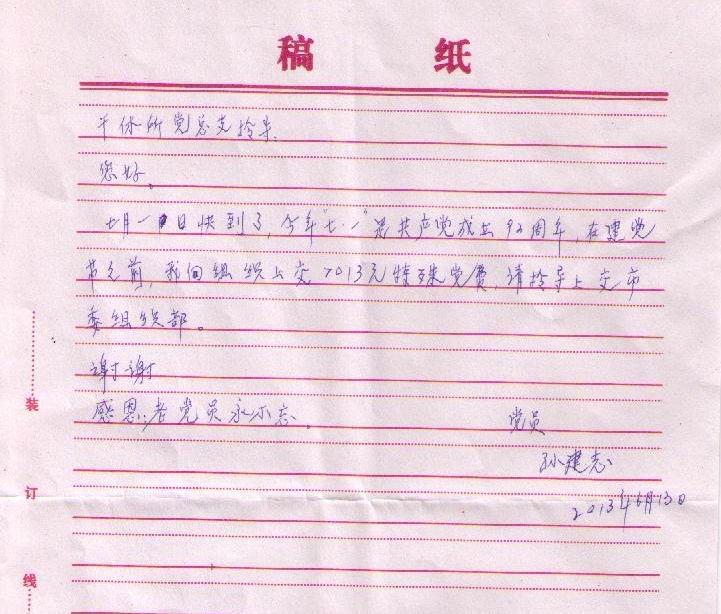 稿 纸
干休所党总支领导.
您好.
七月一日快到了,今年"七·一"是共产党成立92周年,在建党
节之前,我向组织上交2013元特殊党费,请领导上交市
委组织部。
谢谢
感恩,老党员永不忘。 党员
孙建志
2013年6月13日
装
订
线